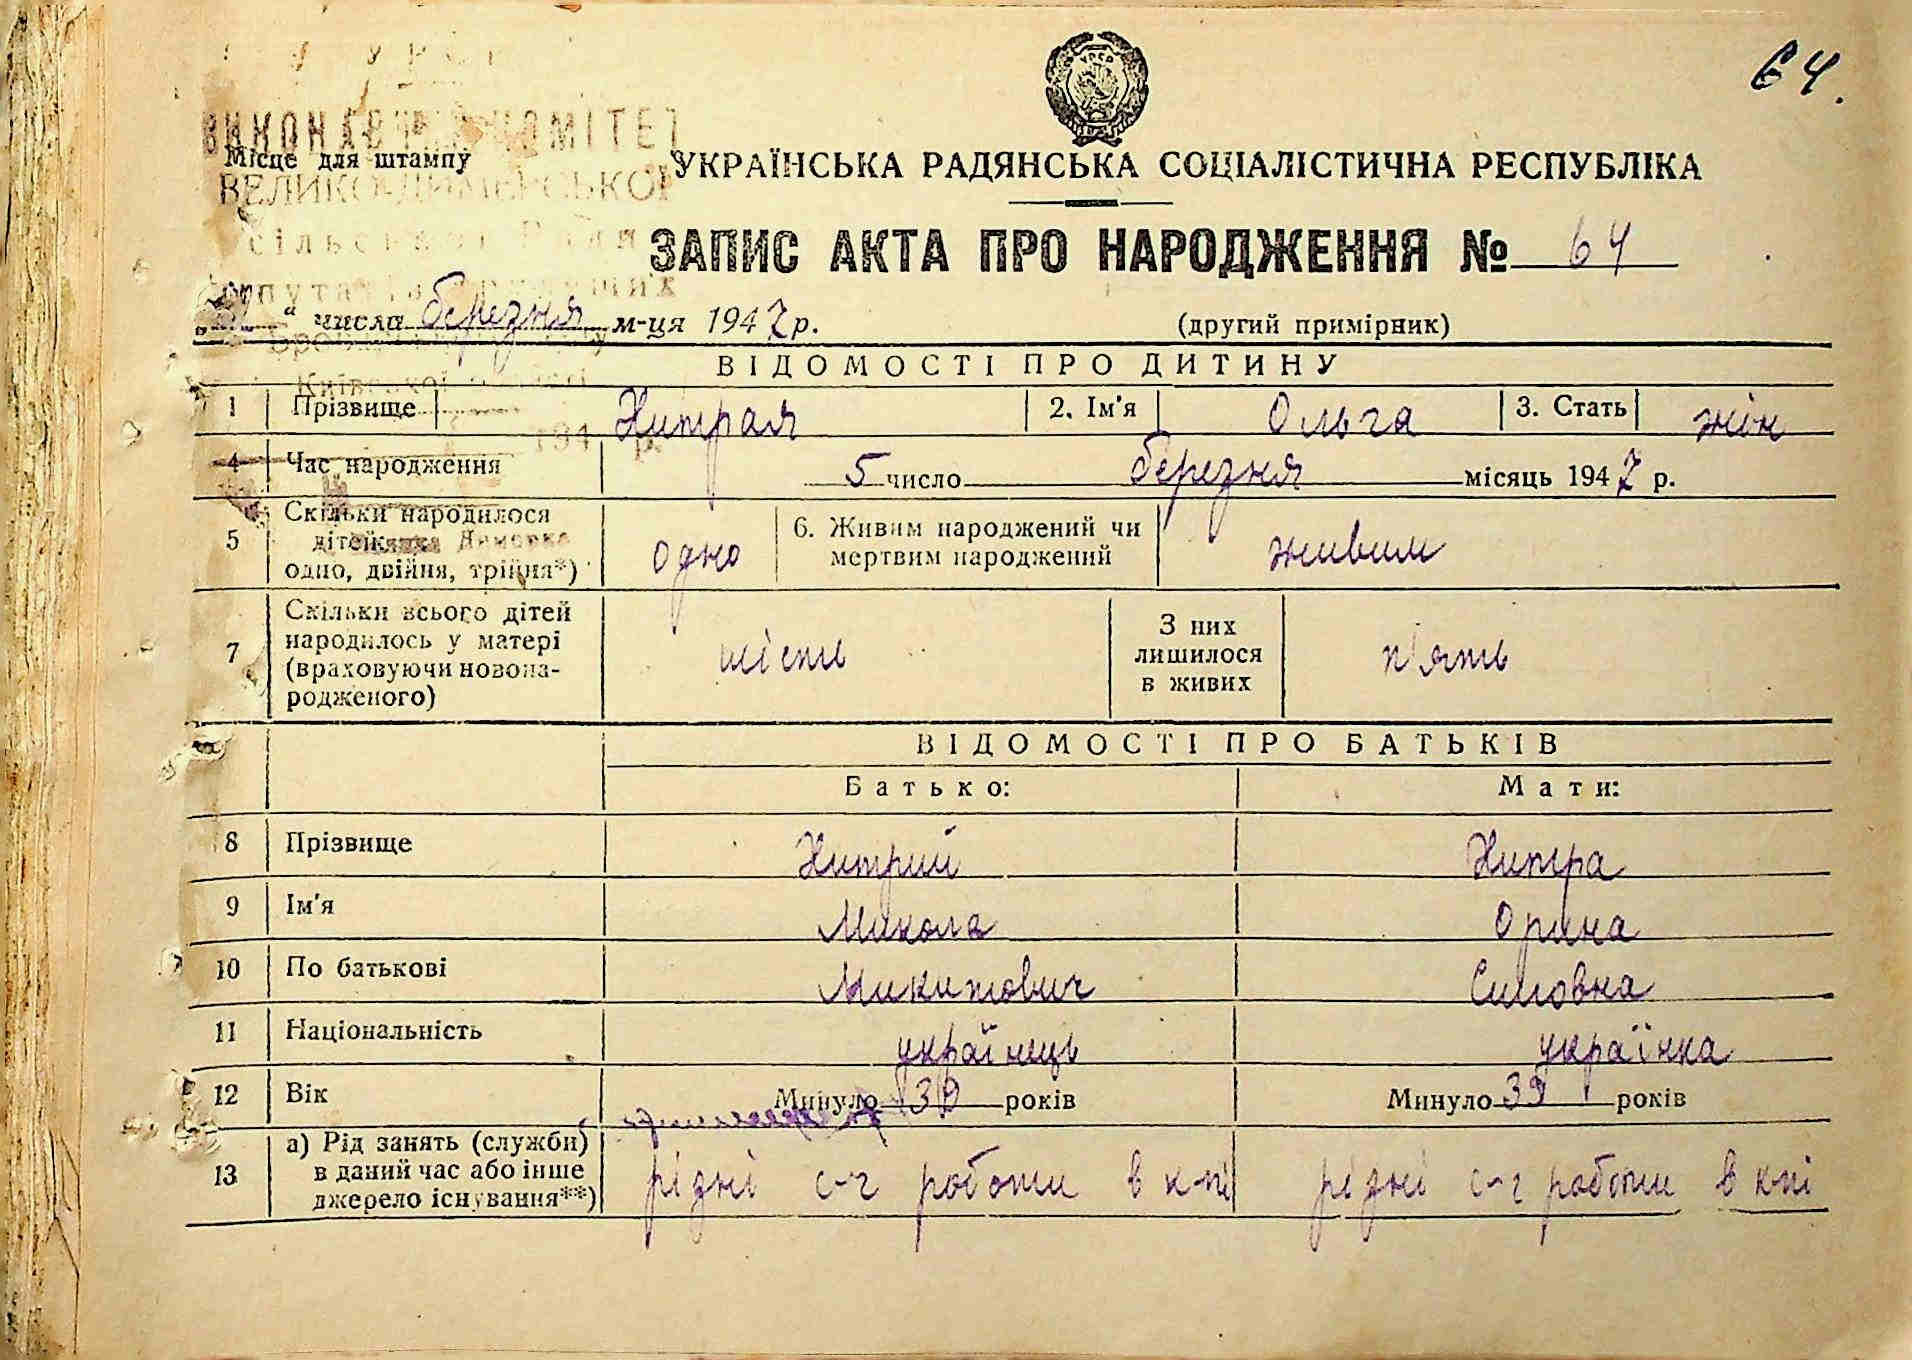 64.
УРСР
ВИКОНАВЧИЙ КОМІТЕТ
Місце для штампу
ВЕЛИКО-ДИМЕРСЬКОЇ
УКРАЇНСЬКА РАДЯНСЬКА СОЦІАЛІСТИЧНА РЕСПУБЛІКА
сільської Ради
ЗАПИС АКТА ПРО НАРОДЖЕННЯ № 64
депутатів трудящих
" числа березня м-ця 1947 р. (другий примірник)
Київської області
ВІДОМОСТІ ПРО ДИТИНУ
1 Прізвище Хитрая 2. Ім'я Ольга 3. Стать жін
194 р.
4 Час народження 5 число березня місяць 1947 р.
5 Скільки народилося дітей одно, двійня, трійня*) одно 6. Живим народжений чи мертвим народжений живим
7 Скільки всього дітей народилось у матері (враховуючи новона-родженого) шість З них лишилося в живих п'ять
ВІДОМОСТІ ПРО БАТЬКІВ
Батько: Мати:
8 Прізвище Хитрий Хитра
9 Ім'я Микола Орина
10 По батькові Микитович Симовна
11 Національність українець українка
12 Вік Минуло 39 років Минуло 39 років
13 а) Рід занять (служби) в даний час або інше джерело існування**) рідні с-г роботи в к-пі рідні с-г роботи в к-пі